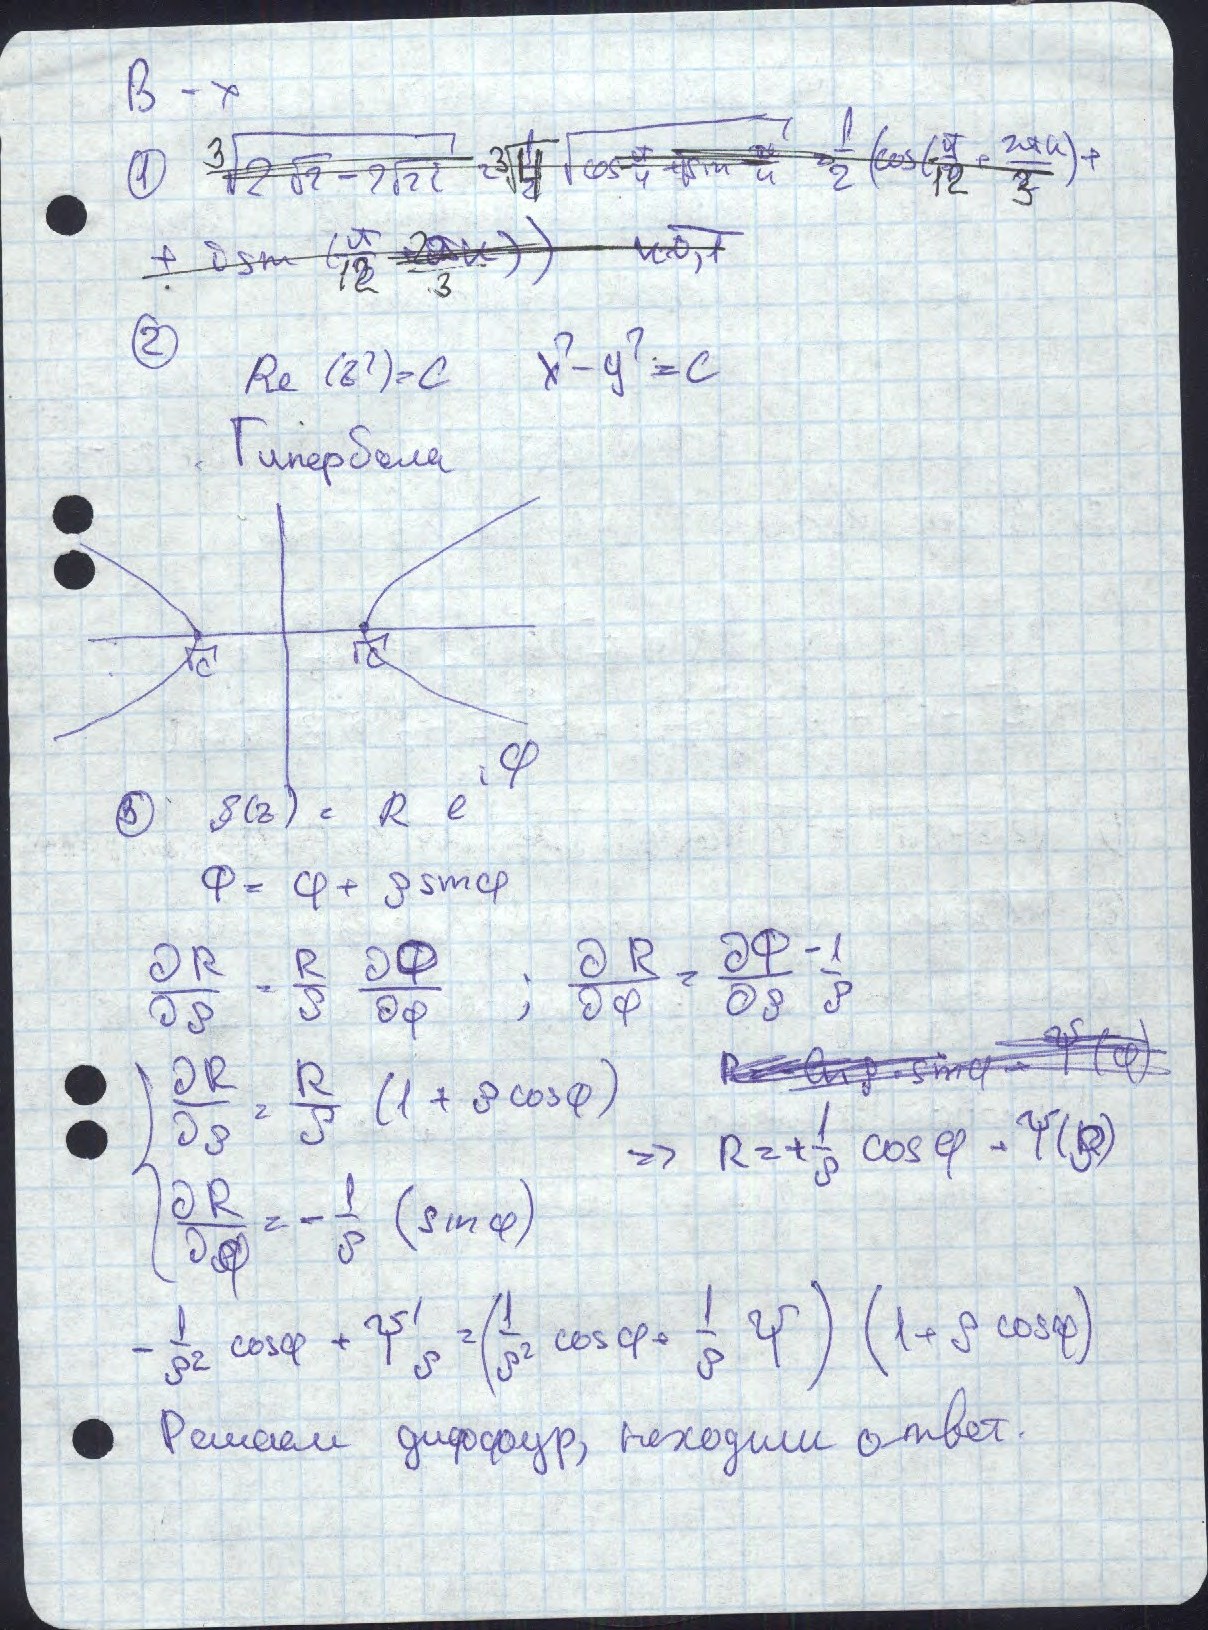 В - х
① ∛(2√2 - 2√2i) = ∛4 √(cos π/4 + i sin π/4) = 1/2 (cos(π/12 + 2πk/3) +
+ i sin (π/12 + 2πk/3)) k=0,1
② Re (z²) = C x² - y² = C
Гипербола
√C √C
③ f(z) = R e^{iΦ}
Φ = φ + ρ sin φ
∂R/∂ρ = R/ρ ∂Φ/∂φ ; ∂R/∂φ = ∂Φ/∂ρ - 1/ρ
∂R/∂ρ = R/ρ (1 + ρ cos φ)
∂R/∂φ = - 1/ρ (sin φ)
=> R = + 1/ρ cos φ + Ψ(ρ)
- 1/ρ² cos φ + Ψ'ρ = (1/ρ² cos φ + 1/ρ Ψ) (1 + ρ cos φ)
Решаем диффур, находим ответ.